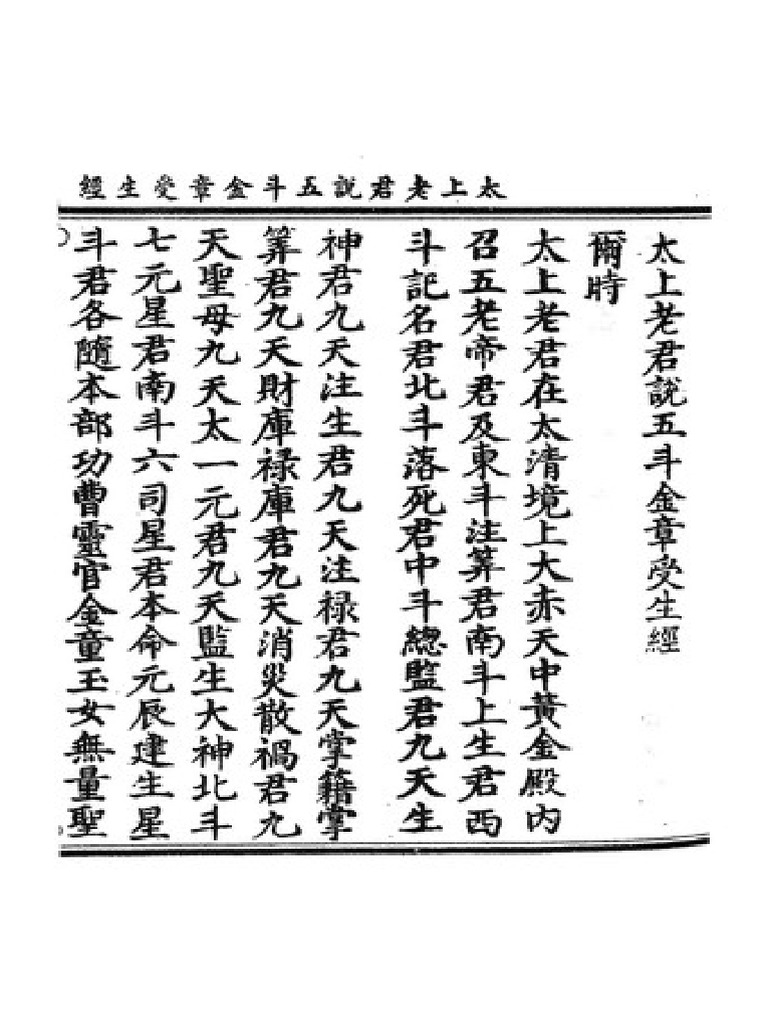 太上老君說五斗金章受生經
太上老君說五斗金章受生經
爾時
太上老君在太清境上大赤天中黃金殿内
召五老帝君及東斗注筭君南斗上生君西
斗記名君北斗落死君中斗總監君九天生
神君九天注生君九天注禄君九天掌籍掌
筭君九天財庫禄庫君九天消災散禍君九
天聖母九天太一元君九天監生大神北斗
七元星君南斗六司星君本命元辰建生星
斗君各隨本部功曹靈官金童玉女無量聖